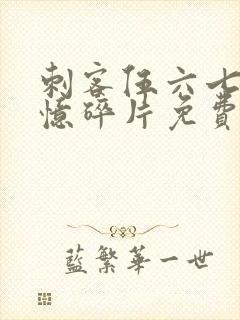 刺客伍六七
憶碎片免費
藍繁華一世